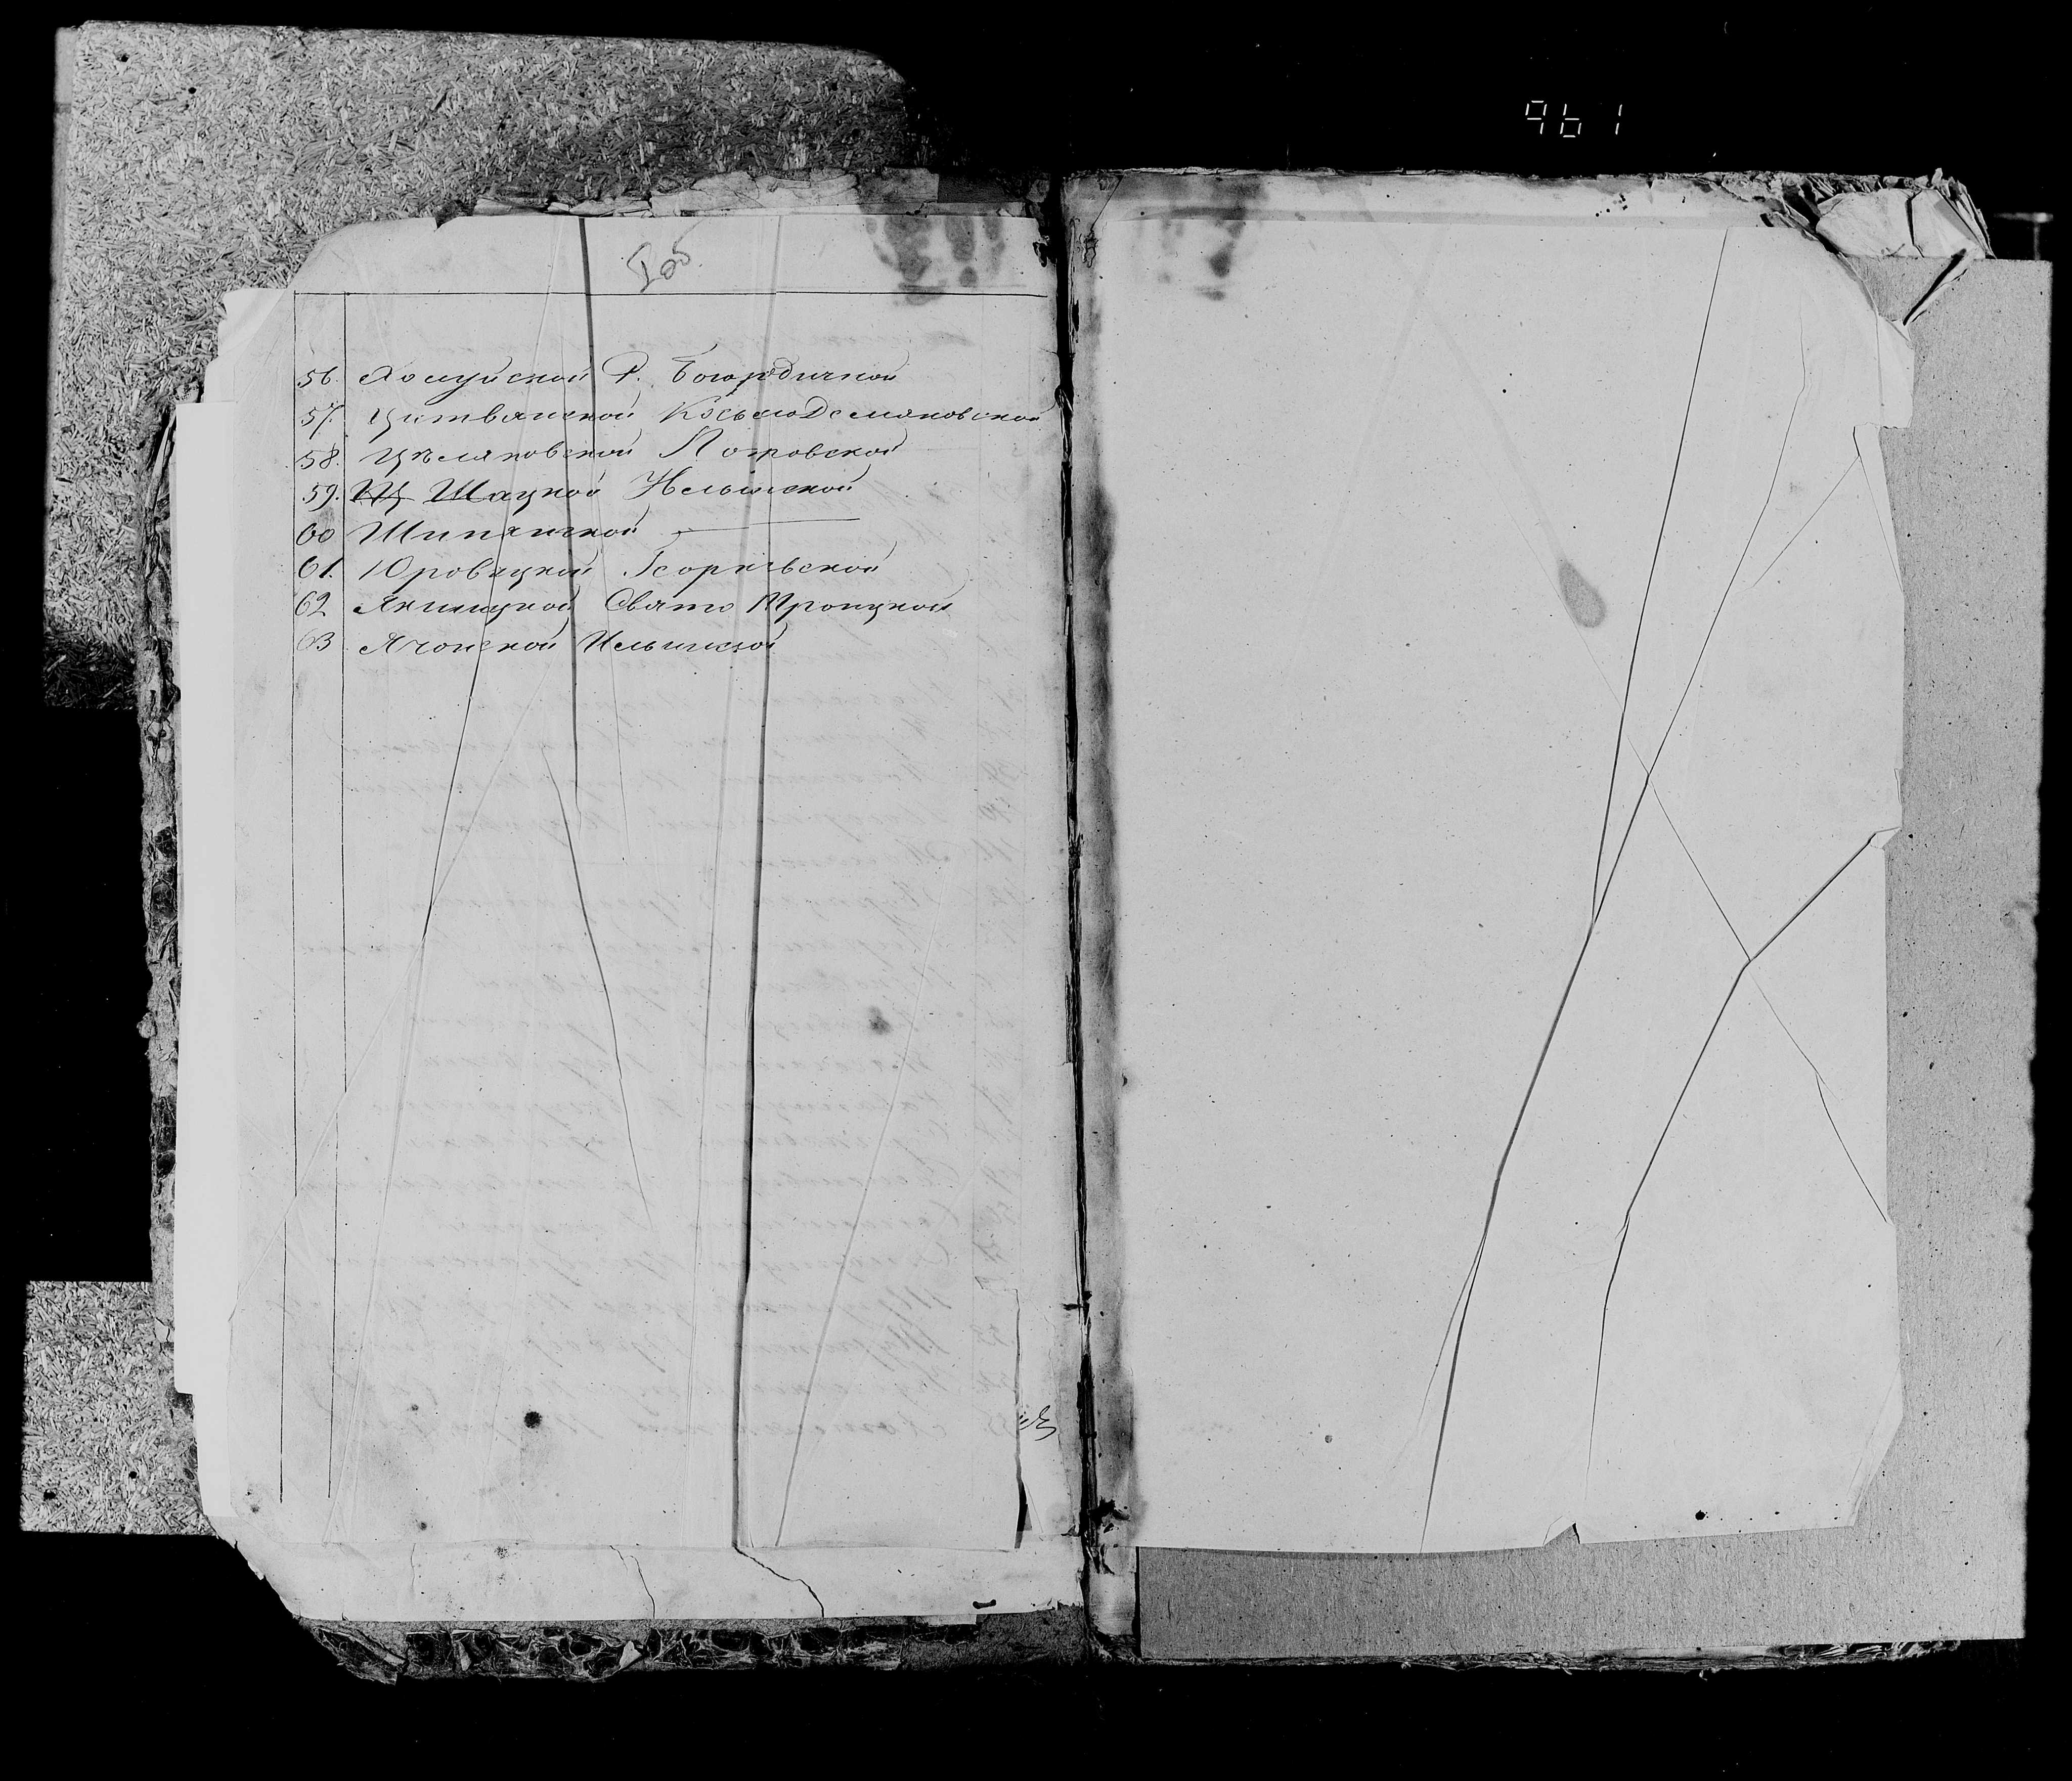 961
56. Холуйской Р. Богородичной
57. Цитвянской Косьмо Демяновской
58. Цѣляковской Покровской
59. Шацкой Ильинской
60 Шипянской
61. Юровицкой Георгіевской
62 Якимицкой Свято Троицкой
63 Ячонской Ильинской